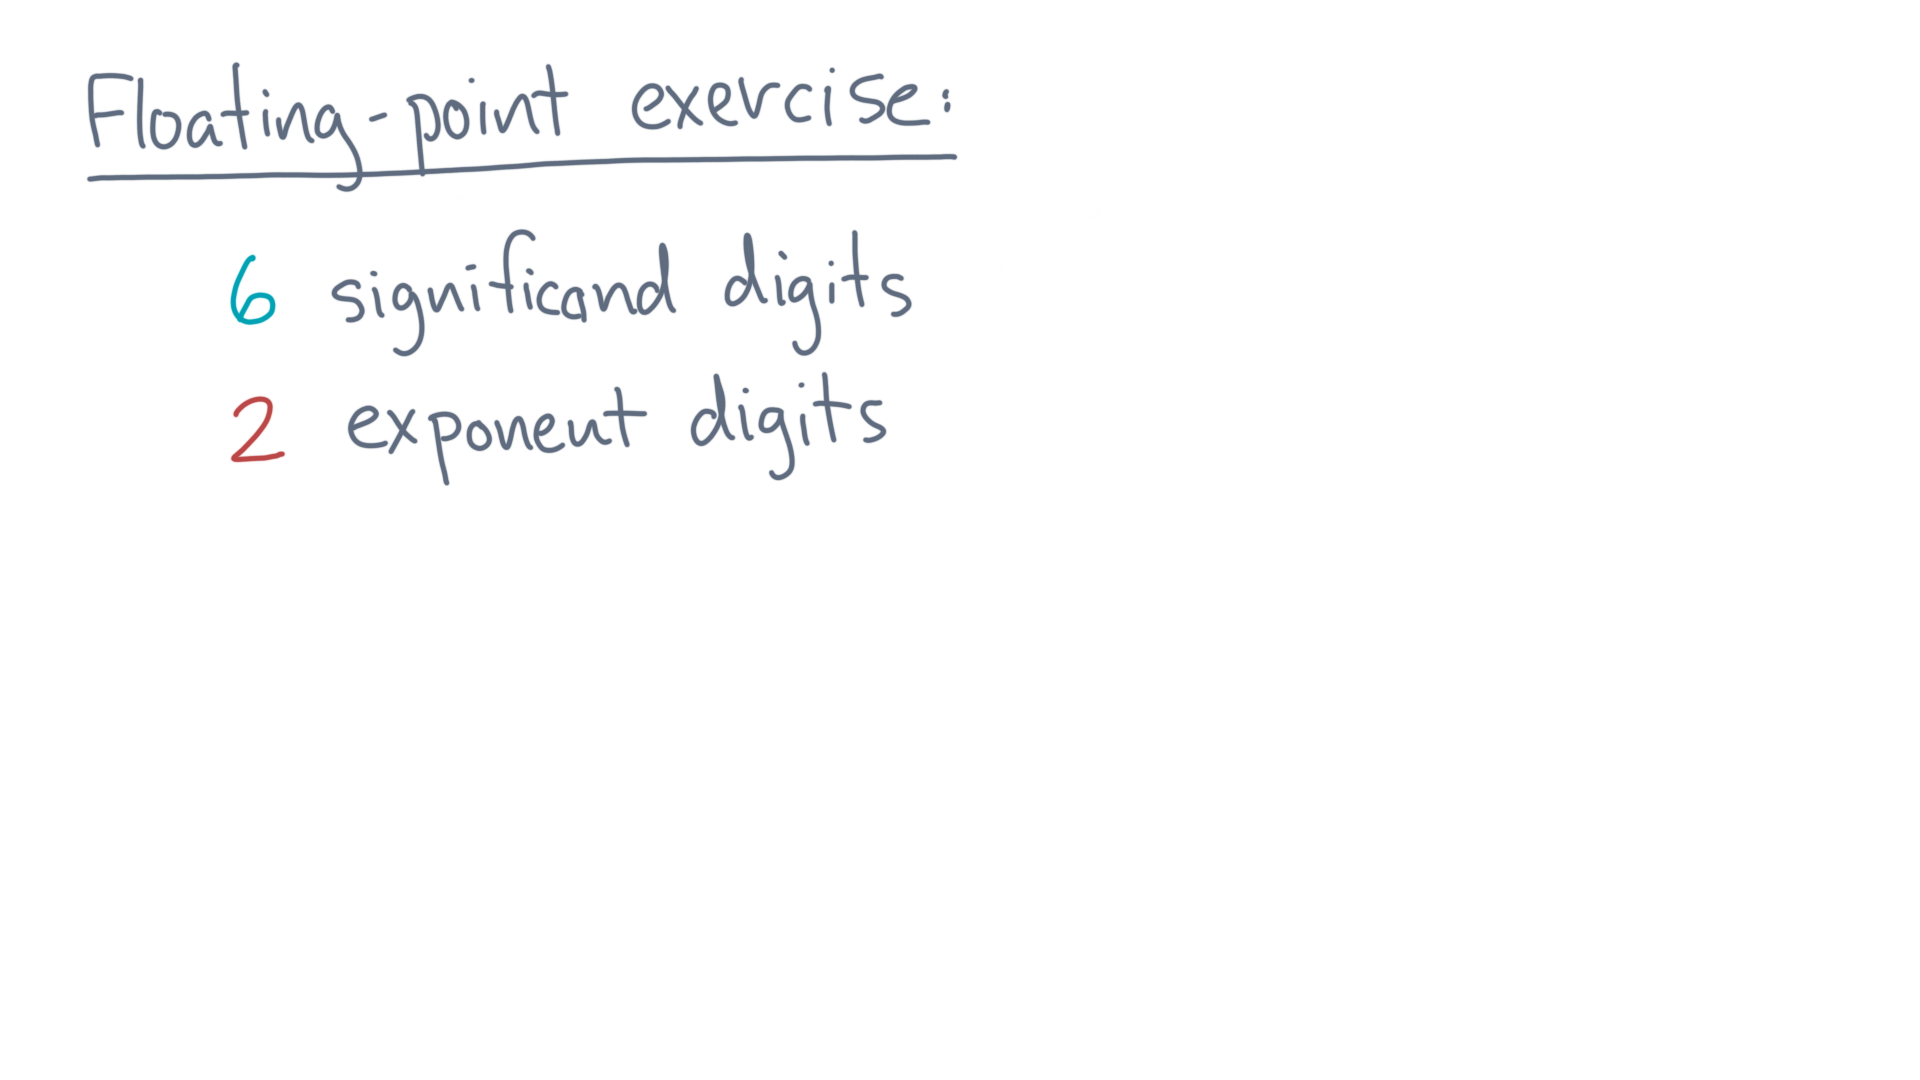 Floating-point exercise:
6 significand digits
2 exponent digits